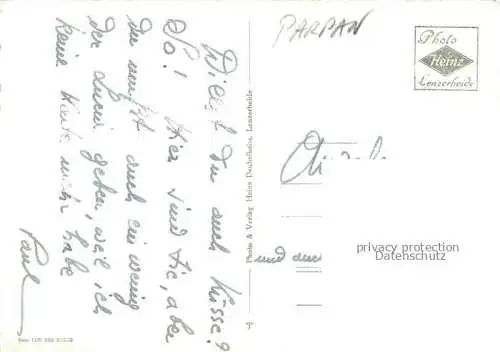 Willst du auch Küsse?
So! Hier sind sie, aber
du musst auch ein wenig
der Lucie geben, weil ich
keine Karte mehr habe
Paul
PARPAN
Photo
Heinz
Lenzerheide
Photo & Verlag Heinz Dachselheim, Lenzerheide
und
privacy protection
Datenschutz